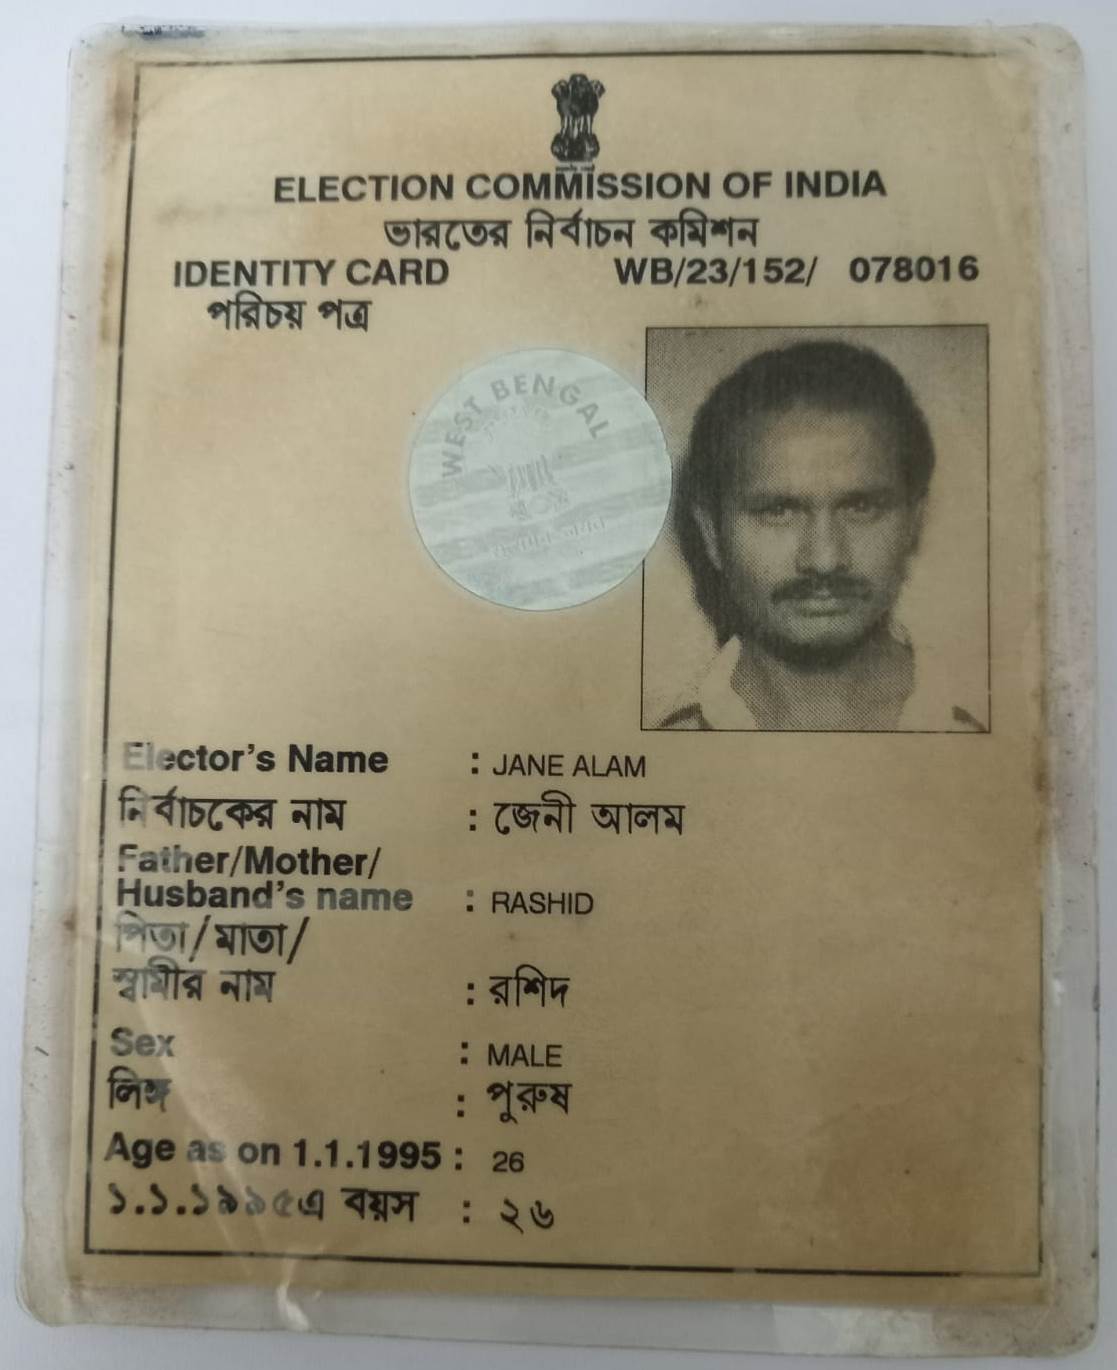 ELECTION COMMISSION OF INDIA
ভারতের নির্বাচন কমিশন
IDENTITY CARD WB/23/152/ 078016
পরিচয় পত্র
WEST BENGAL
Elector's Name : JANE ALAM
নির্বাচকের নাম : জেনী আলম
Father/Mother/
Husband's name : RASHID
পিতা/মাতা/
স্বামীর নাম : রশিদ
Sex : MALE
লিঙ্গ : পুরুষ
Age as on 1.1.1995 : 26
১.১.১৯৯৫এ বয়স : ২৬